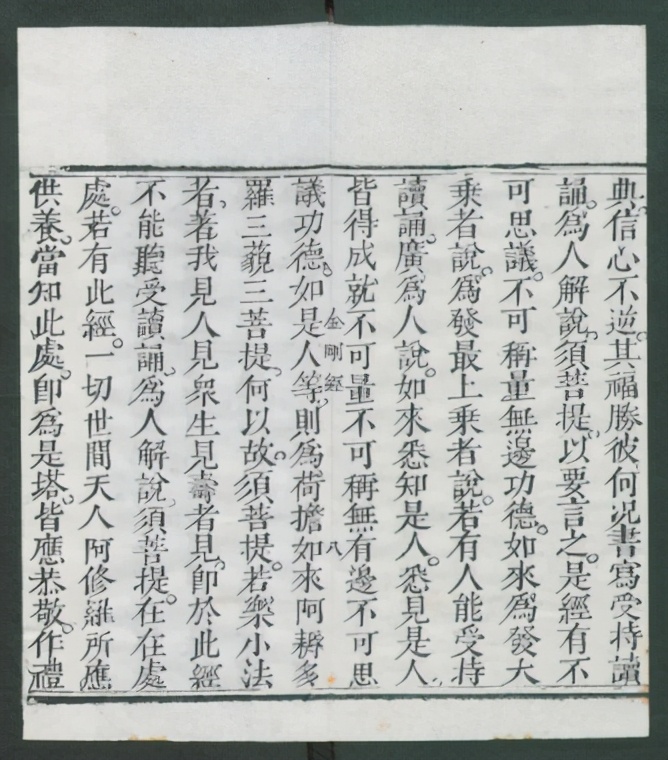 典。信心不逆。其福勝彼。何况書寫受持讀
誦。爲人解說。須菩提。以要言之。是經有不
可思議。不可稱量無邊功德。如來爲發大
乘者說。爲發最上乘者說。若有人能受持
讀誦。廣爲人說。如來悉知是人。悉見是人。
皆得成就不可量不可稱無有邊不可思
金剛經 八
議功德。如是人等。則爲荷擔如來阿耨多
羅三藐三菩提。何以故。須菩提。若樂小法
者。著我見人見衆生見壽者見。卽於此經
不能聽受讀誦。爲人解說。須菩提。在在處
處。若有此經。一切世間天人阿修羅所應
供養。當知此處。卽爲是塔。皆應恭敬。作禮